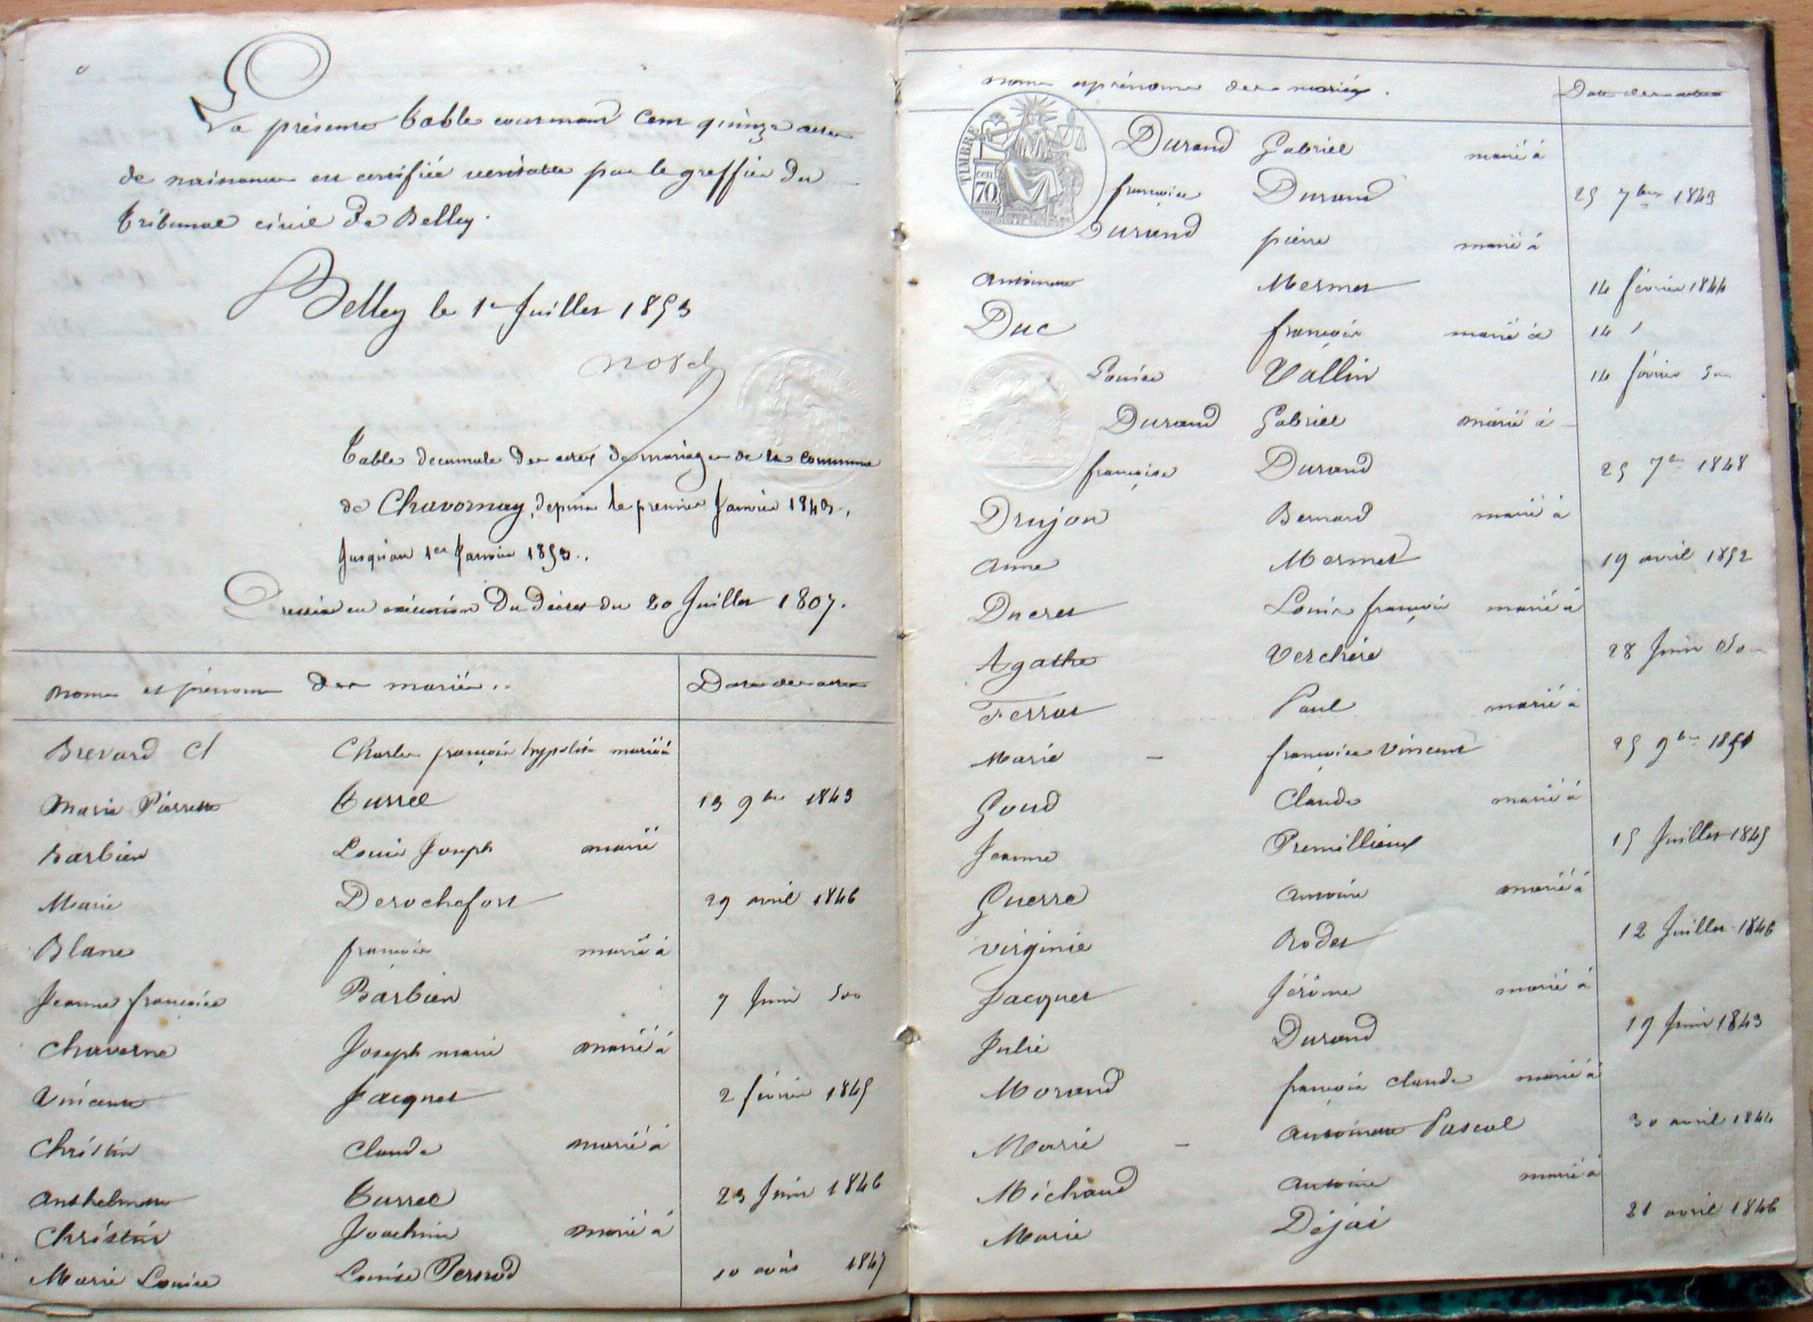 La présente table contenant cent quinze actes
de naissance est certifiée véritable par le greffier du
tribunal civil de Belley.
Belley le 1er Juillet 1853
Table décennale des actes de mariage de la commune
de Chavornay, depuis le premier Janvier 1843,
Jusqu'au 1er Janvier 1853.
Dressée en exécution du décret du 20 Juillet 1807.
Noms et prénoms des mariés. Date des actes
Brevard Charles françois hyppolite marié à
Marie Pierrette Turrel 13 9bre 1843
Barbier Louis Joseph marié
Marie Derochefort 29 avril 1846
Blanc françois marié à
Jeanne françoise Barbier 7 Juin
Chaverne Joseph marie marié à
Vincente Jacquet 2 février 1845
Christin Claude marié à
Anthelmette Turrel 23 Juin 1846
Christin Joachim marié à
Marie Louise Louise Pernod 10 août 1847
Noms et prénoms des mariés. Date des actes
TIMBRE
70
Durand Gabriel marié à
françoise Durand 25 7bre 1843
Durand pierre marié à
Antoinette Mermet 14 février 1844
Duc françois marié à 14
Louise Vallin 14 février
Durand Gabriel marié à
françoise Durand 25 7bre 1848
Drujon Bernard marié à
Anne Mermet 19 avril 1852
Ducret Louis françois marié à
Agathe Verchère 28 Juin
Ferrat Paul marié à
Marie françoise Vincent 25 9bre
Goud Claude marié à
Jeanne Premillieux 15 Juillet 1845
Guerre Antoine marié à
Virginie Rodet 12 Juillet 1846
Jacquet Jérôme marié à
Julie Durand 19 Juin 1843
Morand françois claude marié à
Marie Antoinette Pascal 30 avril 1844
Michaud Antoine marié à
Marie Déjai 21 avril 1846